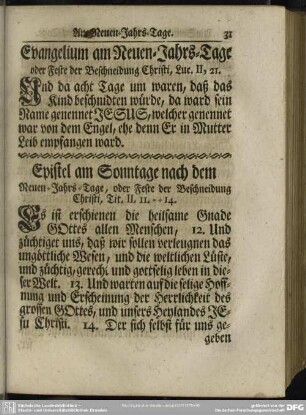 Am Neuen-Jahrs-Tage. 31
Evangelium am Neuen-Jahrs-Tage
oder Feste der Beschneidung Christi, Luc. II, 21.
Und da acht Tage um waren, daß das
Kind beschnidten würde, da ward sein
Name genennet JESUS, welcher genennet
war von dem Engel, ehe denn Er in Mutter
Leib empfangen ward.
Epistel am Sonntage nach dem
Neuen-Jahrs-Tage, oder Feste der Beschneidung
Christi, Tit. II. 11.--14.
Es ist erschienen die heilsame Gnade
GOttes allen Menschen, 12. Und
züchtiget uns, daß wir sollen verleugnen das
ungöttliche Wesen, und die weltlichen Lüste,
und züchtig, gerecht und gottselig leben in die-
ser Welt. 13. Und warten auf die selige Hoff-
nung und Erscheinung der Herrlichkeit des
grossen GOttes, und unsers Heylandes JE-
su Christi. 14. Der sich selbst für uns ge-
geben